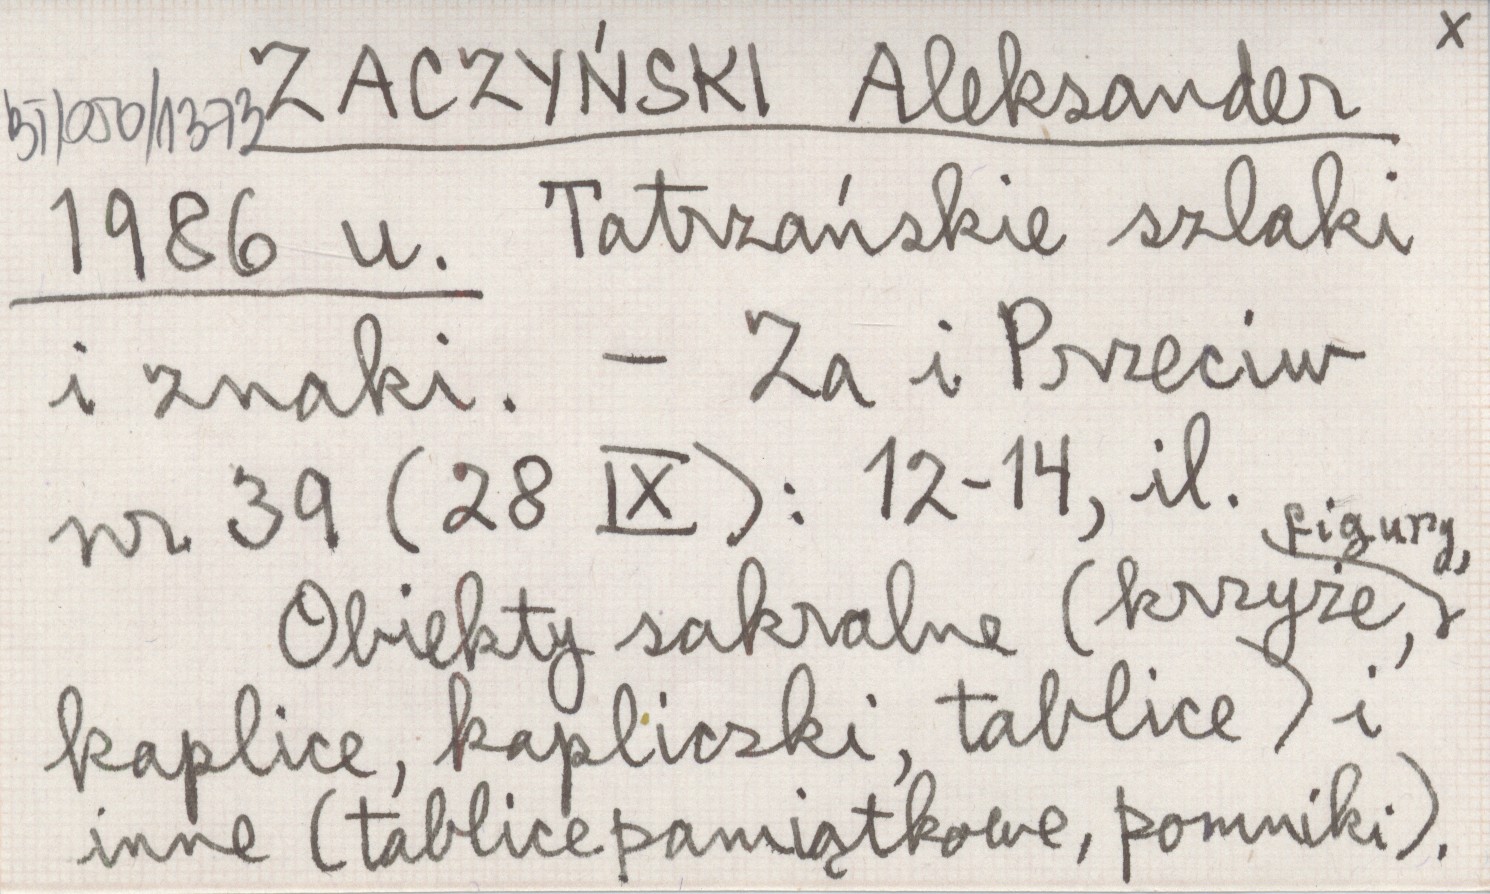 x
ZACZYŃSKI Aleksander
BT/050/1373
1986 u. Tatrzańskie szlaki
i znaki. – Za i Przeciw
nr 39 (28 IX): 12-14, il.
figury,
Obiekty sakralne (krzyże,
kaplice, kapliczki, tablice) i
inne (tablice pamiątkowe, pomniki).